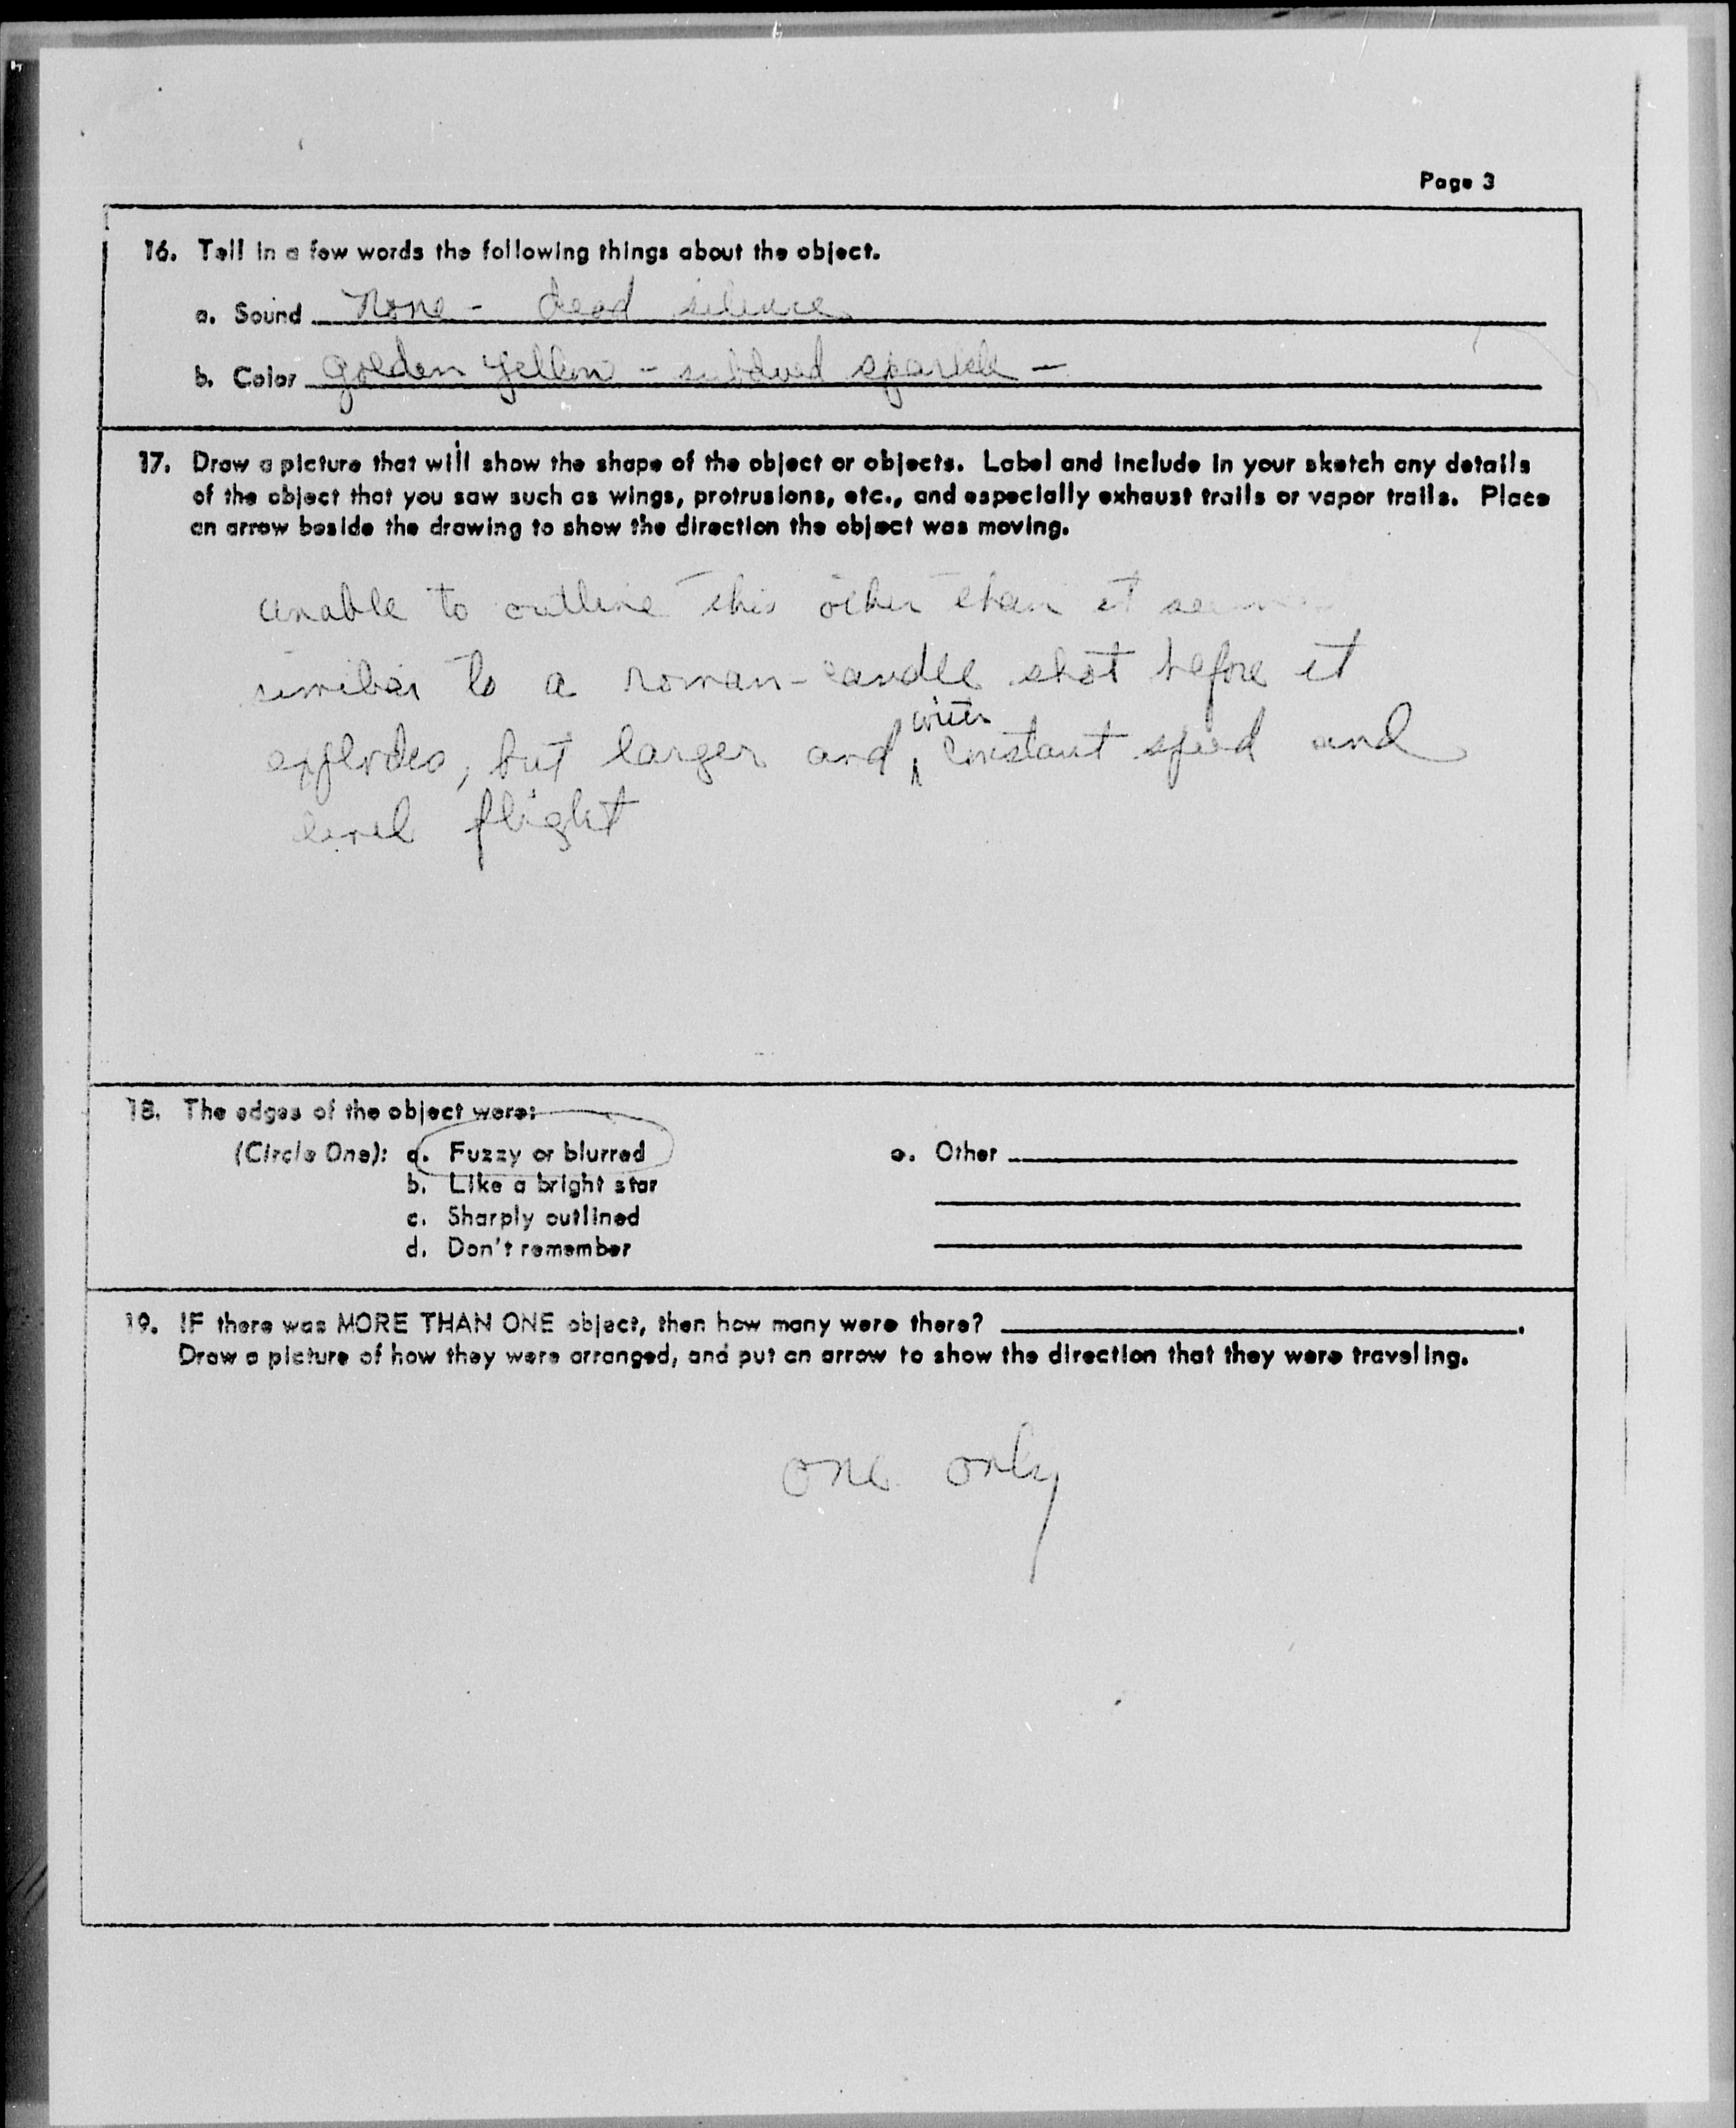 Page 3
16. Tell in a few words the following things about the object.
a. Sound None - dead silence
b. Color golden yellow - subdued sparkle -
17. Draw a picture that will show the shape of the object or objects. Label and include in your sketch any details
of the object that you saw such as wings, protrusions, etc., and especially exhaust trails or vapor trails. Place
an arrow beside the drawing to show the direction the object was moving.
unable to outline this other than it
similar to a roman-candle shot before it
explodes, but larger and with constant speed and
level flight
18. The edges of the object were:
(Circle One): a. Fuzzy or blurred
b. Like a bright star
c. Sharply outlined
d. Don't remember
e. Other
19. IF there was MORE THAN ONE object, then how many were there?
Draw a picture of how they were arranged, and put an arrow to show the direction that they were traveling.
one only